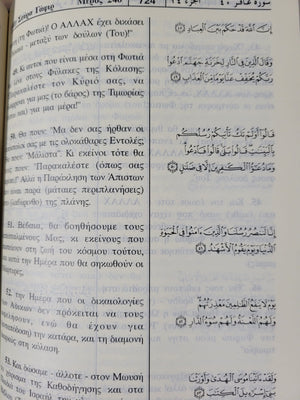 Σούρα Γάφιρ
Μέρος 24ο
724
الجزء ٢٤
سورة غافر ٤٠
(στη Φωτιά)! Ο ΑΛΛΑΧ έχει δικάσει
μεταξύ των δούλων (Του)!"
Κι αυτοί που είναι μέσα στη Φωτιά
στους Φύλακες της Κόλασης:
τον Κύριό σας, να
για μας (το βάρος) της Τιμωρίας
για μια μέρα!"
50. Θα πουν: "Μα δεν σας ήρθαν οι
σας με τις ολοκάθαρες Εντολές;
"Μάλιστα". Κι εκείνοι τότε θα
"Παρακαλέστε (όπως σας
Αλλά η Παράκληση των Απίστων
είναι παρά (μάταιες περιπλανήσεις)
της πλάνης.
51. Βέβαια, θα βοηθήσουμε τους
μας, κι εκείνους που
στη ζωή του κόσμου τούτου,
κατά την Ημέρα που θα σηκωθούν οι
52. την Ημέρα που οι δικαιολογίες
των Αδίκων δεν πρόκειται να τους
ενώ θα έχουν για
την κατάρα, και τη διαμονή
στη κόλαση.
53. Και δώσαμε - άλλοτε - στον Μωυσή
της Καθοδήγησης και στα
του Ισραήλ
إِنَّ ٱللَّهَ قَدْ حَكَمَ بَيْنَ ٱلْعِبَادِ ٤٨
وَقَالَ ٱلَّذِينَ فِى ٱلنَّارِ لِخَزَنَةِ جَهَنَّمَ ٱدْعُوا۟
رَبَّكُمْ يُخَفِّفْ عَنَّا يَوْمًا مِّنَ ٱلْعَذَابِ ٤٩
قَالُوٓا۟ أَوَلَمْ تَكُ تَأْتِيكُمْ رُسُلُكُم
بِٱلْبَيِّنَٰتِ قَالُوا۟ بَلَىٰ قَالُوا۟ فَٱدْعُوا۟
وَمَا دُعَٰٓؤُا۟ ٱلْكَٰفِرِينَ إِلَّا فِى ضَلَٰلٍ ٥٠
إِنَّا لَنَنصُرُ رُسُلَنَا وَٱلَّذِينَ ءَامَنُوا۟ فِى ٱلْحَيَوٰةِ
ٱلدُّنْيَا وَيَوْمَ يَقُومُ ٱلْأَشْهَٰدُ ٥١
يَوْمَ لَا يَنفَعُ ٱلظَّٰلِمِينَ مَعْذِرَتُهُمْ
وَلَهُمُ ٱللَّعْنَةُ وَلَهُمْ سُوٓءُ ٱلدَّارِ ٥٢
وَلَقَدْ ءَاتَيْنَا مُوسَى ٱلْهُدَىٰ وَأَوْرَثْنَا
بَنِىٓ إِسْرَٰٓءِيلَ ٱلْكِتَٰبَ ٥٣